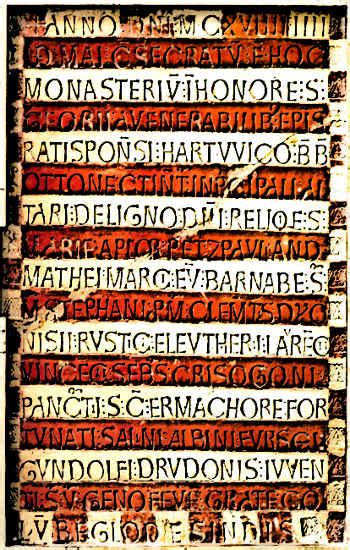 ANNO·DN̄I·M·C·XVIIII·IIII
ID·MAI·C̄SECRATV̄·Ē·HOC
MONASTERIV̄·Ī·HONORE·S·
GEORII·A VENERABILIB·EPIS
RATISPON̄SI·HARTVVICO·B̄B̄
OTTONE·CTINTI·IN PCIPALI·AL
TARI·DE LIGNO·DN̄I·RELIQE·S·
MARIE·APLOR·PET·Z PAVL·AND
MATHEI·MARCI·EV̄·BARNABE·S̄
M·STEPHANI·P M·CLEM̄TS·DYO
NISII·RVSTC·ELEVTHERII·LAR̄EC̄
VINCEC·SEPS·CRISOGONI·
PANC̄TI·S·C̄·ERMACHORE·FOR
TVNATI·SALNI·ALBINI·FVRSEI·
GVNDOLFI·DRVDONIS·IVVEN
TI·S·V̄·GENOFEVE·GRATE·CO
LV̄BE·GLODESINDIS